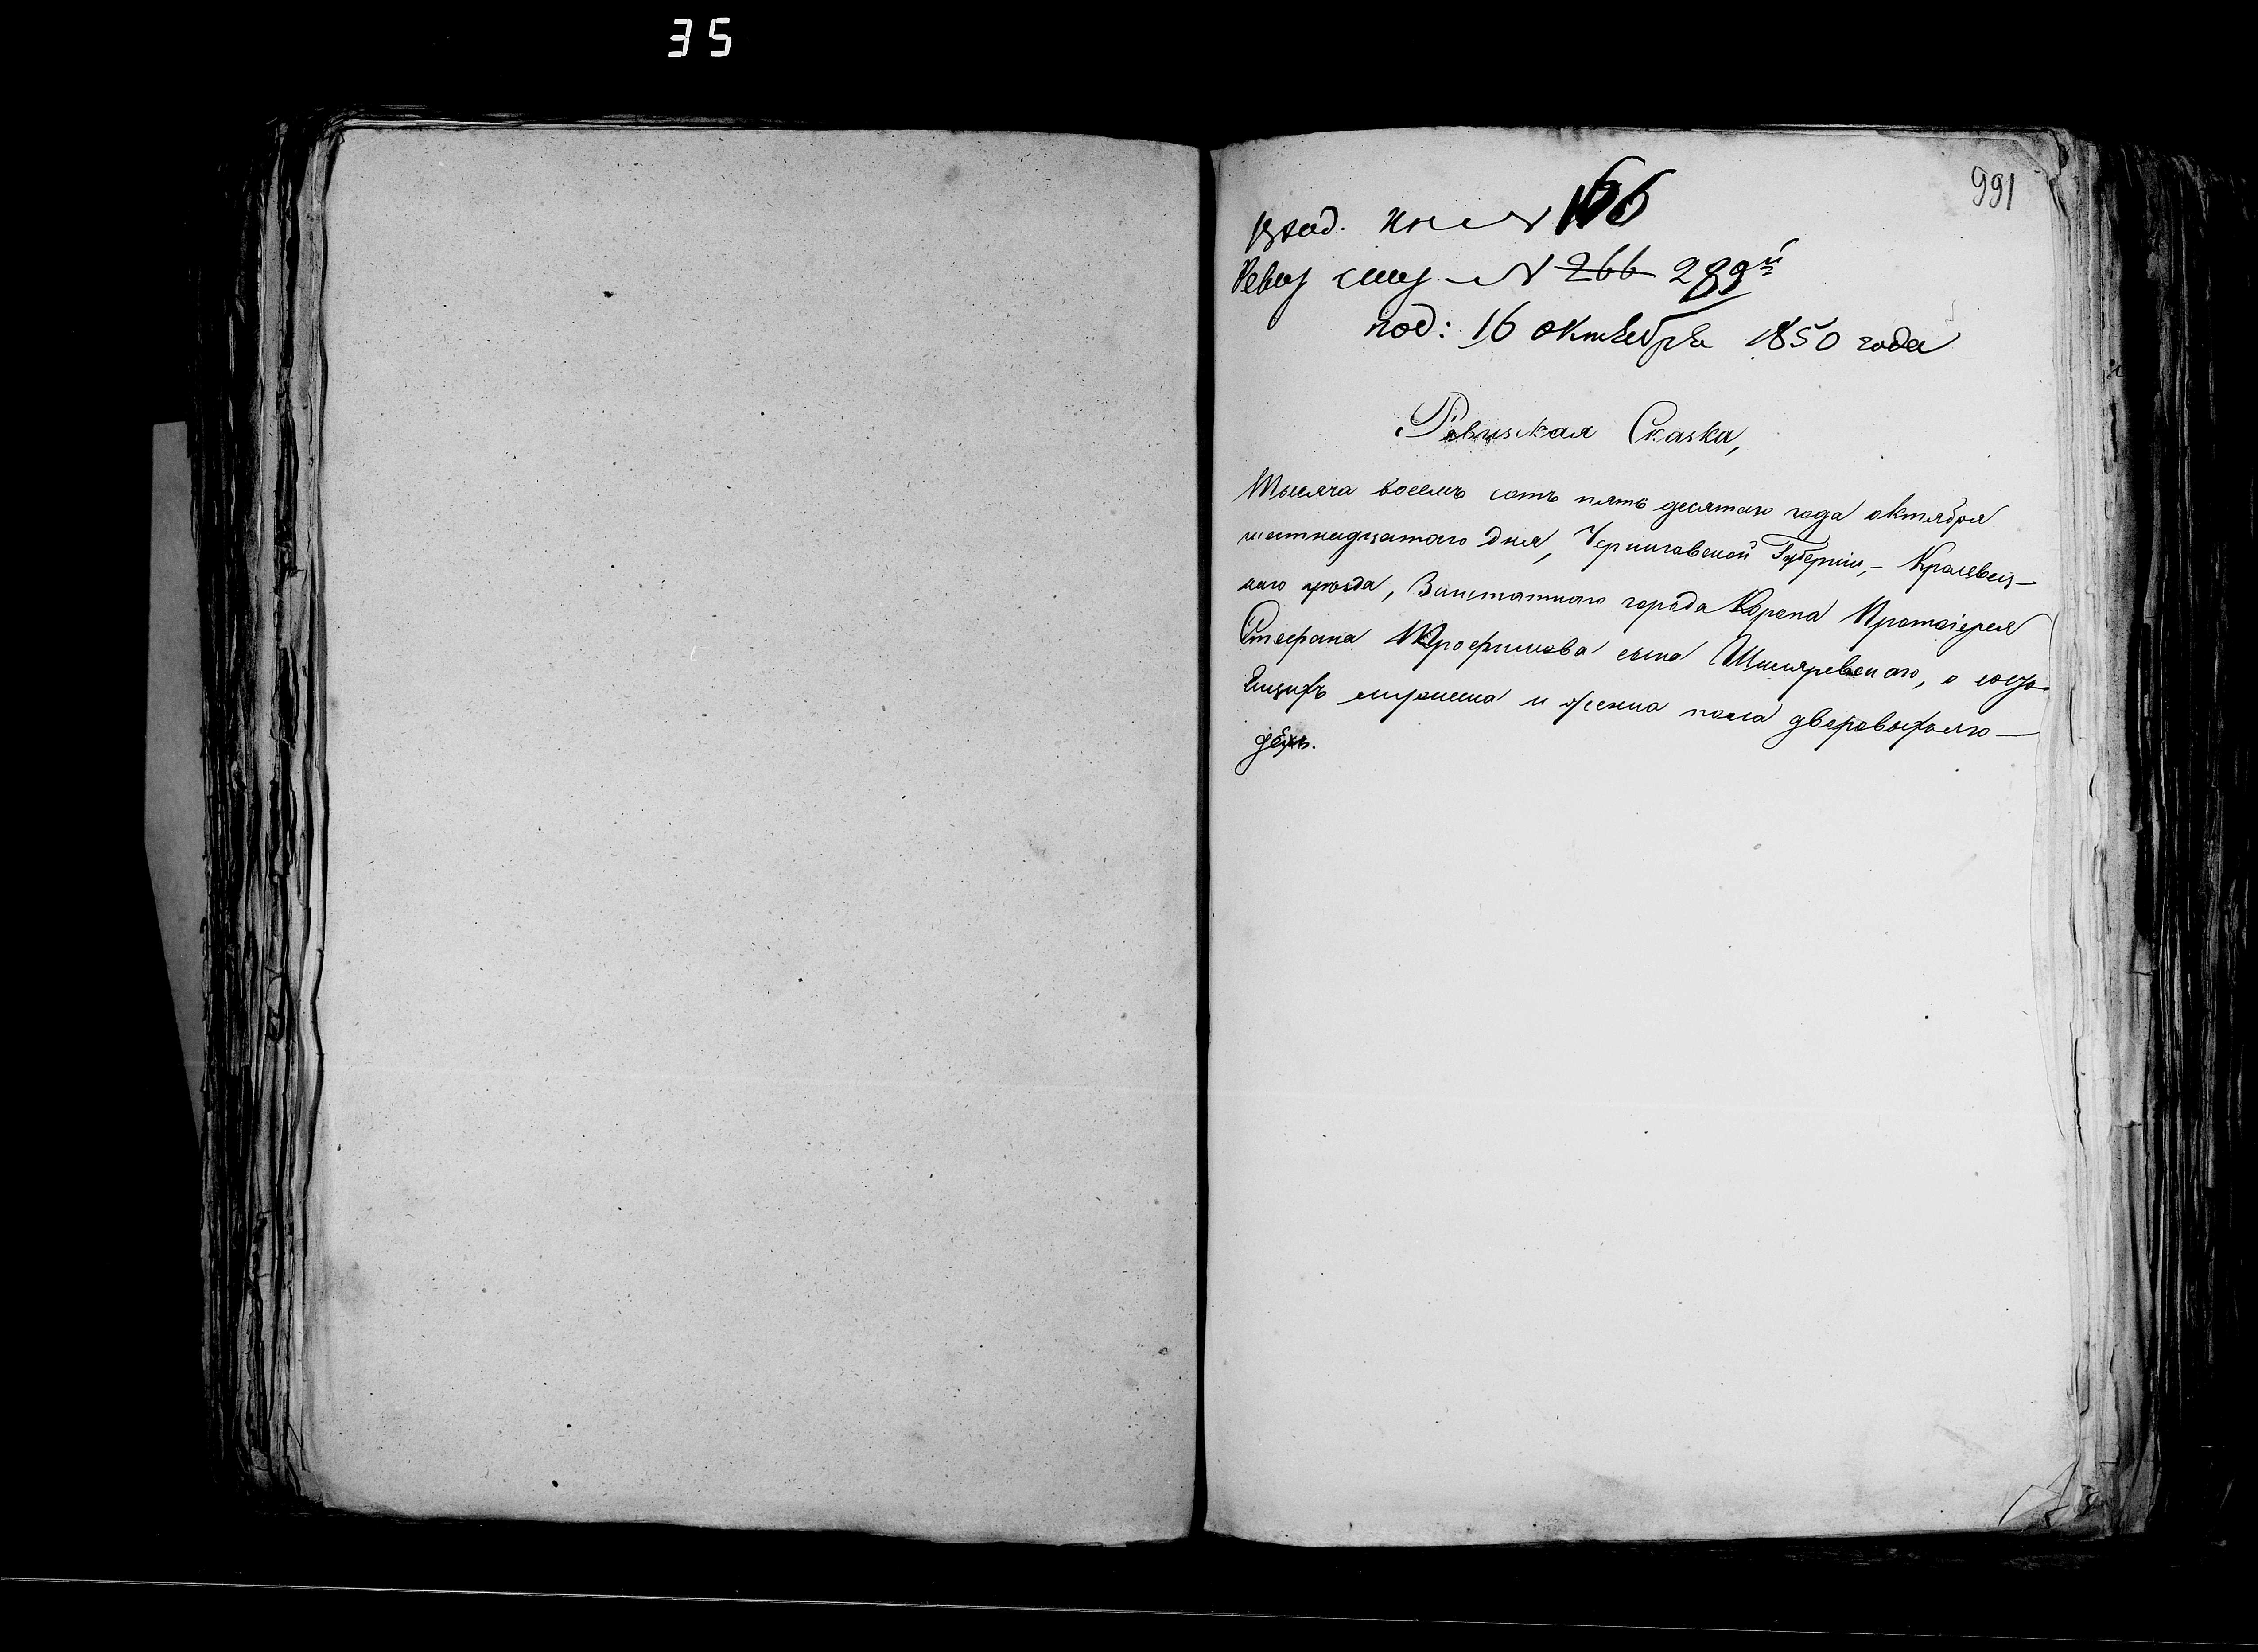 35
991
№ 166
Ревиз № 266 289й
под: 16 октября 1850 года
Ревизская Сказка,
Тысяча восемь сотъ пять десятаго года октября
шестнадцатаго дня, Черниговской Губерніи, – Кролевец–
каго уѣзда, Заштатнаго города Коропа Протоіерея
Стефана Трофимова сына Шкляревскаго, о состо–
ящихъ мужеска и женска пола дворовыхъ лю–
дѣхъ.